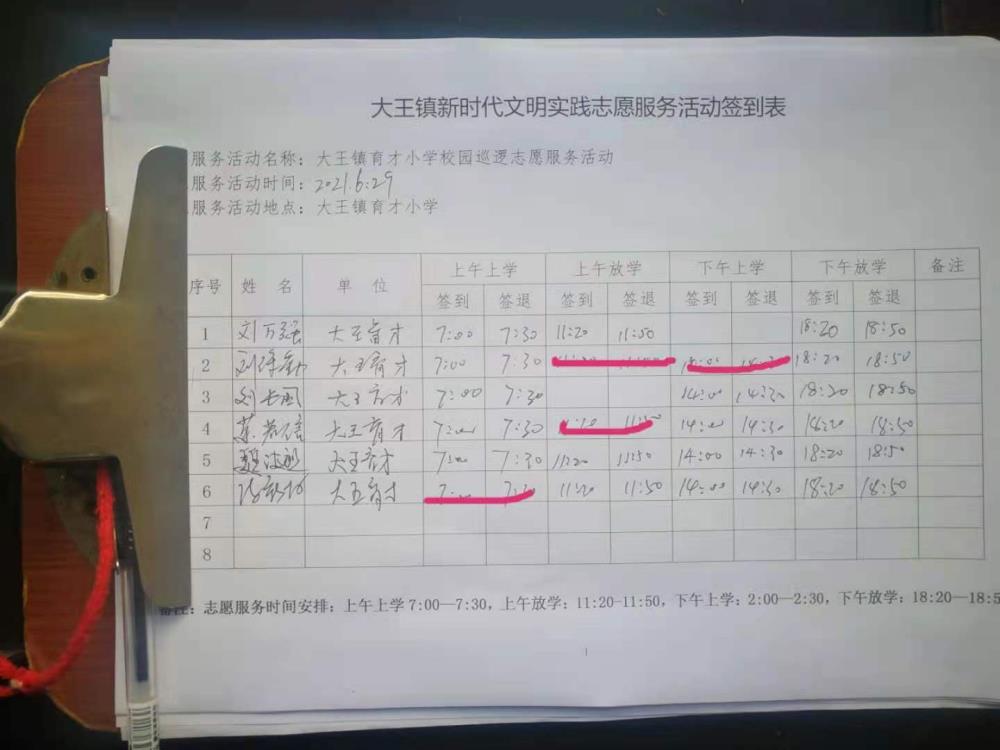 大王镇新时代文明实践志愿服务活动签到表
服务活动名称：大王镇育才小学校园巡逻志愿服务活动
服务活动时间：2021.6.29
服务活动地点：大王镇育才小学
上午上学 上午放学 下午上学 下午放学 备注
序号 姓 名 单 位 签到 签退 签到 签退 签到 签退 签到 签退
1 刘万强 大王育才 7:00 7:30 11:20 11:50 18:20 18:50
2 大王育才 7:00 7:30 18:20 18:50
3 大王育才 7:00 7:30 14:00 14:30 18:20 18:50
4 大王育才 7:00 7:30 14:00 14:30 18:20 18:50
5 大王育才 7:00 7:30 11:20 11:50 14:00 14:30 18:20 18:50
6 大王育才 11:20 11:50 14:00 14:30 18:20 18:50
7
8
备注：志愿服务时间安排：上午上学7:00—7:30，上午放学：11:20-11:50，下午上学：2:00—2:30，下午放学：18:20—18:5